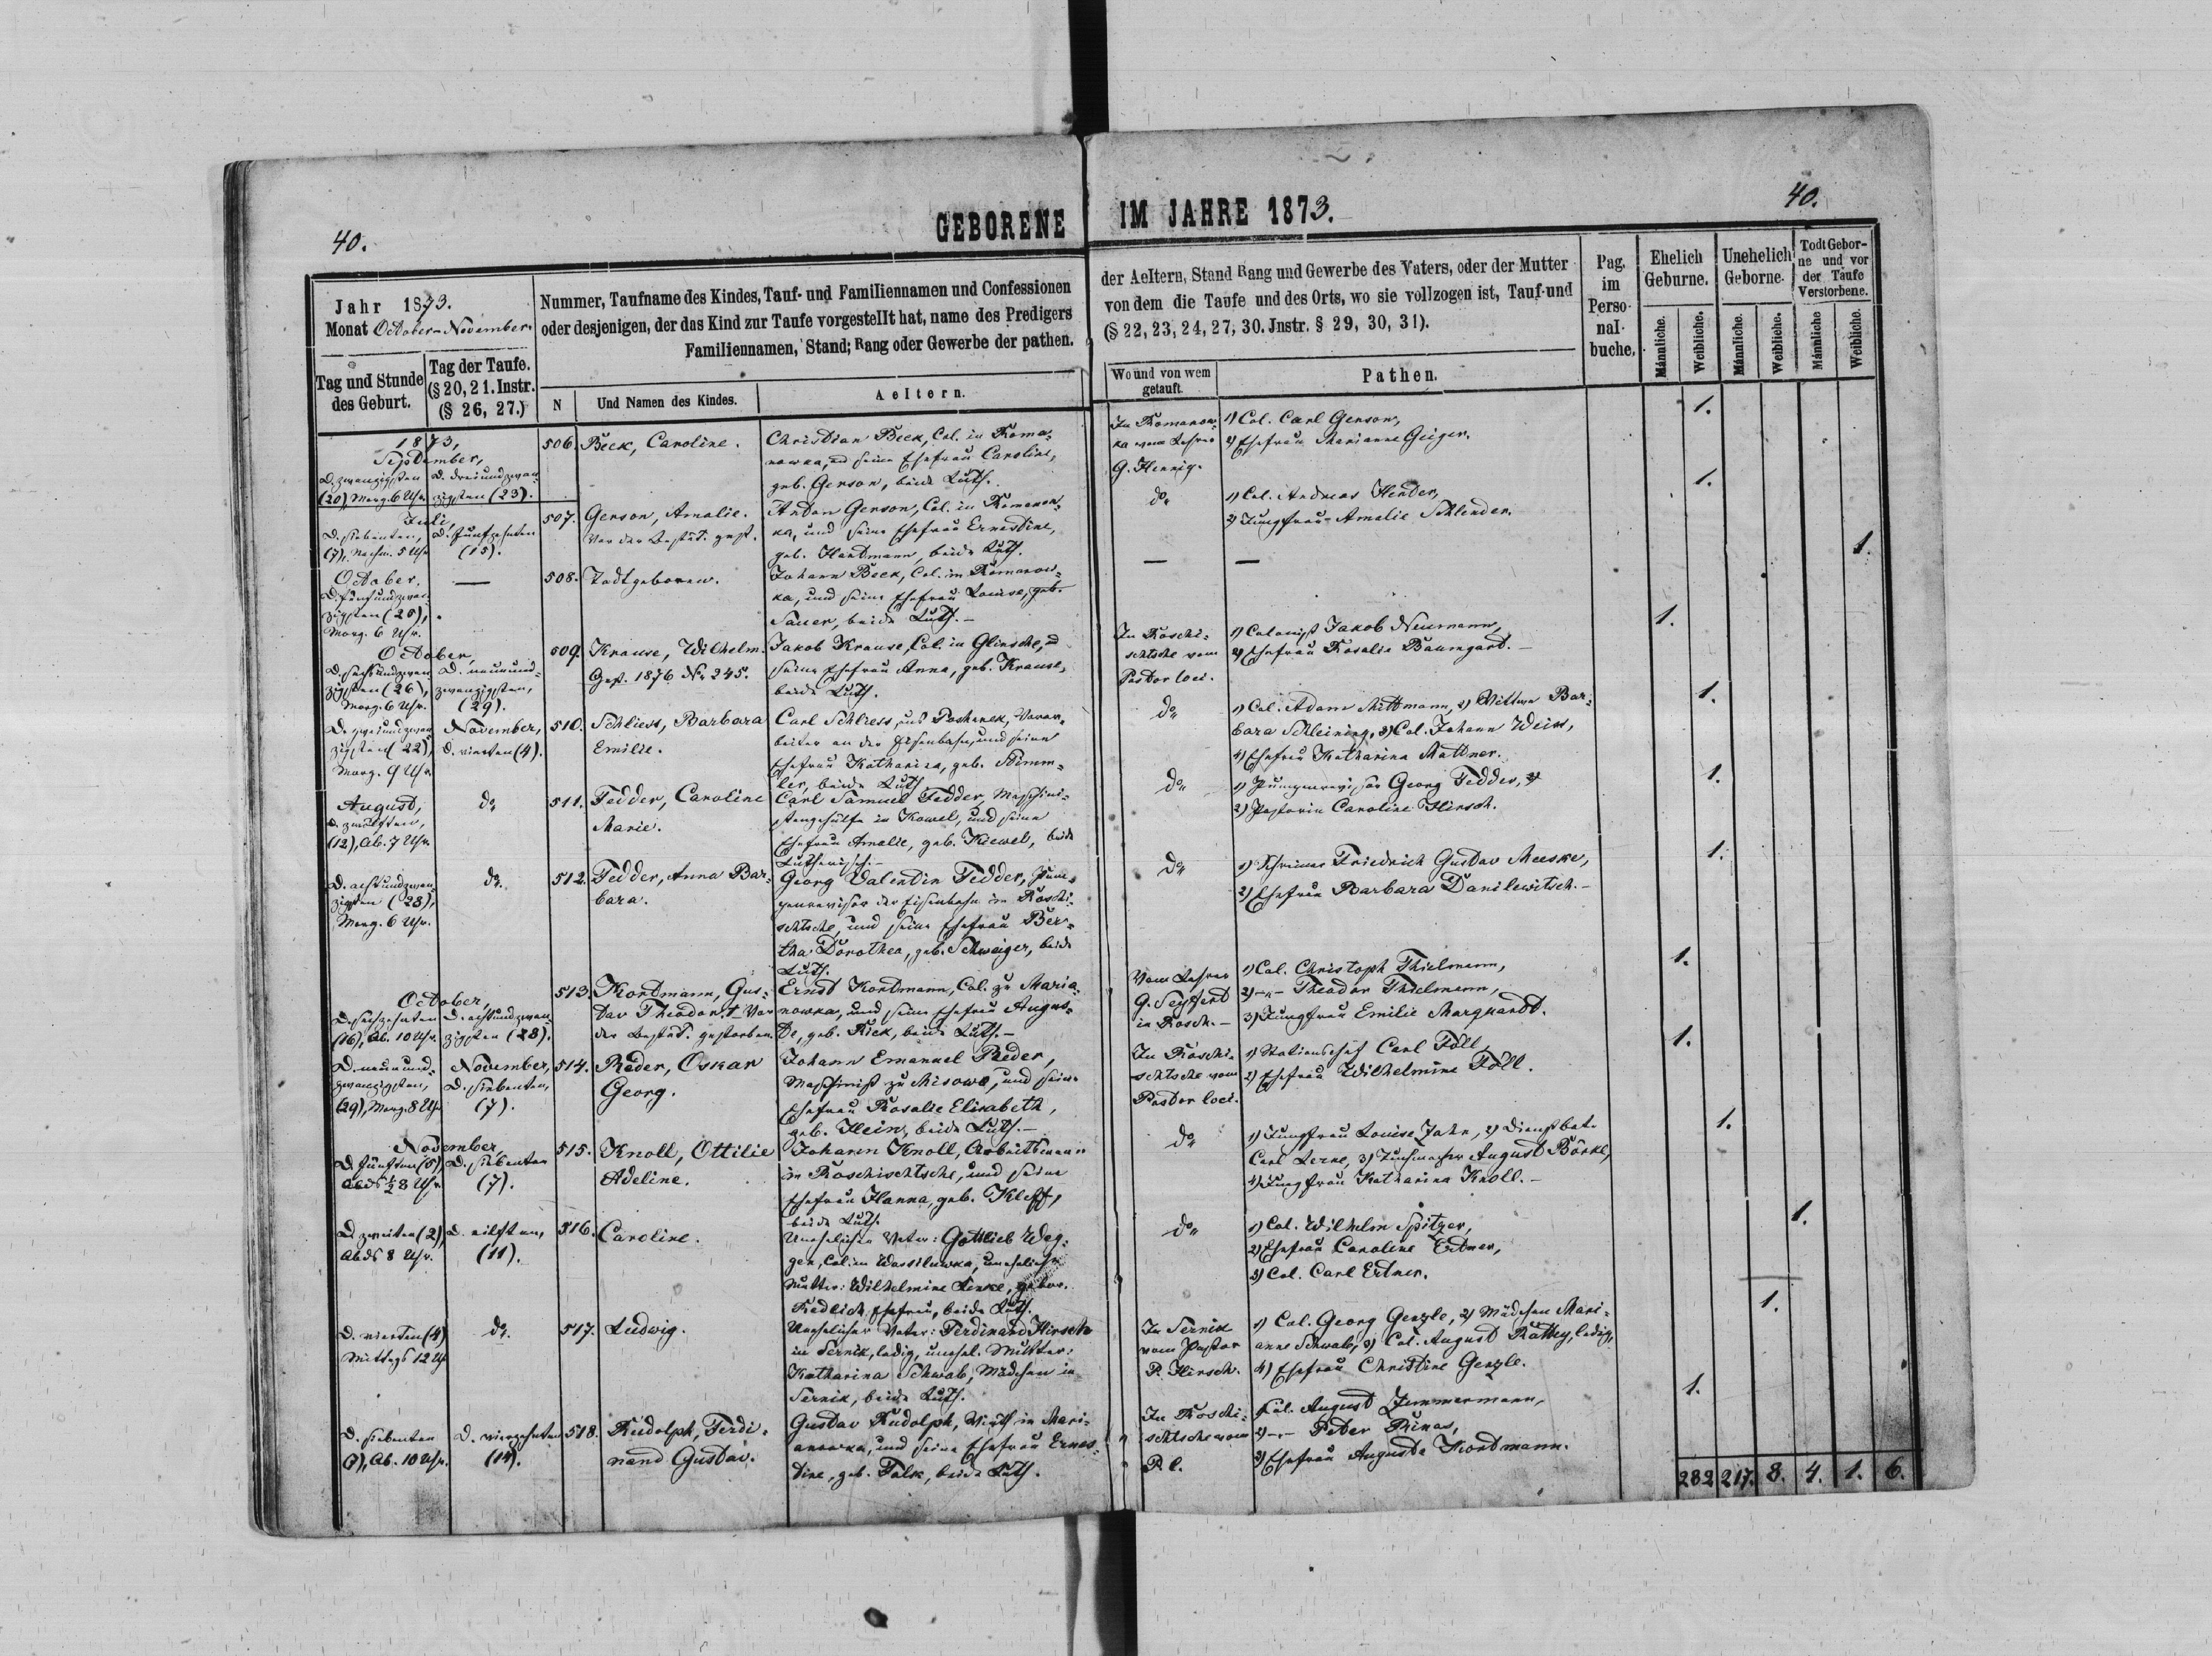 GEBORENE IM JAHRE 1873.
40.
40.
Jahr 1873.
Monat October-November.
Tag und Stunde des Geburt.
Tag der Taufe. (§ 20, 21. Instr. (§ 26, 27.)
Nummer, Taufname des Kindes, Tauf- und Familiennamen und Confessionen
oder desjenigen, der das Kind zur Taufe vorgestellt hat, name des Predigers
Familiennamen, Stand; Rang oder Gewerbe der pathen.
N
Und Namen des Kindes.
Aeltern.
der Aeltern, Stand Rang und Gewerbe des Vaters, oder der Mutter
von dem die Taufe und des Orts, wo sie vollzogen ist, Tauf-und
(§ 22, 23, 24, 27, 30. Jnstr. § 29, 30, 31).
Wo und von wem getauft.
Pathen.
Pag. im Perso- nal- buche.
Ehelich Geburne.
Unehelich Geborne.
Todt Gebor- ne und vor der Taufe Verstorbene.
Männliche.
Weibliche.
Männliche.
Weibliche.
Männliche
Weibliche.
1873,
September,
D. zwanzigsten
(20), Morg. 6 Uhr.
D. dreiundzwan-
zigsten (23).
506.
Beck, Caroline.
Christian Beck, Col. in Roma-
nowka, und seine Ehefrau Caroline,
geb. Gerson, beide Luth.
In Romanow-
ka vom Lehrer
G. Hennig.
1) Col. Carl Gerson,
2) Ehefrau Marianne Geiger.
1.
Juli,
D. siebenten,
(7), Nachm. 5 Uhr
D. Fünfzehnten
(15).
507.
Gerson, Amalie.
Vor der Bestät. gest.
Anton Gerson, Col. in Romanow-
ka, und seine Ehefrau Ernestine,
geb. Hartmann, beide Luth.
do
1) Col. Andreas Henter,
2) Jungfrau Amalie Schlender.
1.
October,
D. fünfundzwan-
zigsten (25),
Morg. 6 Uhr.
—
508.
Todtgeboren.
Johann Beck, Col. in Romanow-
ka, und seine Ehefrau Louise, geb.
Sauer, beide Luth.—
—
—
1.
October,
D. sechsundzwan-
zigsten (26),
Morg. 6 Uhr.
D. neunund-
zwanzigsten,
(29).
509.
Krause, Wilhelm.
Gest. 1876 No 245.
Jakob Krause, Col. in Glinsche, u
seine Ehefrau Anna, geb. Krause,
beide Luth.
In Roschi-
schtsche vom
Pastor loci.
1) Colonist Jakob Neumann,
2) Ehefrau Rosalie Baumgard.—
1.
D. zweiundzwan-
zigsten (22),
Morg. 9 Uhr.
November,
d. vierten (4).
510.
Schliess, Barbara
Emilie.
Carl Schliess, aus Poshenek, Vorar-
beiter an der Eisenbahn, und seine
Ehefrau Katharina, geb. Stimm-
ler, beide Luth.
do
1) Col. Adam Mittmann, 2) Wittwe Bar-
bara Schleining, 3) Col. Johann Weiss,
4) Ehefrau Katharina Mattner.
1.
August,
D. zwölften,
(12), Ab. 7 Uhr.
do
511.
Tedder, Caroline
Marie.
Carl Samuel Tedder, Maschini-
stengehülfe in Kowel, und seine
Ehefrau Amalie, geb. Kiewel, beide
Lutherisch.—
do
1) Georg Tedder,
2) Pastorin Caroline Hirsch.
1.
D. achtundzwan-
zigsten (28),
Morg. 6 Uhr.
do.
512.
Tedder, Anna Bar-
bara.
Georg Valentin Tedder,
der Eisenbahn in Roschi-
schtsche, und seine Ehefrau Ber-
tha Dorothea, geb. Schweiger, beide
Luth.
do
1) Friedrich Gustav Meeske,
2) Ehefrau Barbara Danilewitsch.—
1.
October,
D. sechzehnten
(16), Ab. 10 Uhr.
D. achtundzwan-
zigsten (28).
513.
Kordmann, Gus-
tav Theodor. † Vor
der Bestät. gestorben.
Ernst Kordmann, Col. zu Maria-
nowka, und seine Ehefrau Augus-
te, geb. Rick, beide Luth.—
Vom Lehrer
G. Seyfert
in Rosch.—
1) Col. Christoph Thielmann,
2) -"- Theodor Thielmann,
3) Jungfrau Emilie Marquardt.
1.
D. neunund-
zwanzigsten,
(29), Morg. 8 Uhr
November,
D. siebenten,
(7).
514.
Räder, Oskar
Georg.
Johann Emanuel Räder,
Maschinist zu Misowo, und seine
Ehefrau Rosalie Elisabeth,
geb. Hein, beide Luth.—
In Roschi-
schtsche vom
Pastor loci.
1) Stationschef Carl Föll,
2) Ehefrau Wilhelmine Föll.
1.
November,
D. fünften (5)
Abds ½8 Uhr.
D. siebenten
(7).
515.
Knoll, Ottilie
Adeline.
Johann Knoll, Arbeitsmann
in Roschischtsche, und seine
Ehefrau Hanna, geb. Kleff,
beide Luth.
do
1) Jungfrau Louise Jahn, 2) Dienstbot.
Carl Lerke, 3) Tuchmacher August Börke,
4) Jungfrau Katharina Knoll.—
1.
D. zweiten (2),
Abds 8 Uhr.
D. eilften,
(11).
516.
Caroline.
Unehelicher Vater: Gottlieb Weg-
ger, Col. in Wassiluwka, uneheliche
Mutter: Wilhelmine Linke, gebor.
Riedlich, Ehefrau, beide Luth.
do
1) Col. Wilhelm Spitzer,
2) Ehefrau Caroline Ertner,
3) Col. Carl Ertner.
1.
D. vierten (4)
Mittags 12 Uhr
do.
517.
Ludwig.
Unehelicher Vater: Ferdinand Hirsch
in Sernik, ledig, unehel. Mutter:
Katharina Schwab, Mädchen in
Sernik, beide Luth.
In Sernik
vom Pastor
P. Hirsch.
1) Col. Georg Genzle, 2) Mädchen Mari-
anne Schwab, 3) Col. August Rattey, ledig,
4) Ehefrau Christine Genzle.
1.
D. siebenten
(7), Ab. 10 Uhr.
D. vierzehnten
(14).
518.
Rudolph, Ferdi-
nand Gustav.
Gustav Rudolph, Wirth in Mari-
anowka, und seine Ehefrau Ernes-
tine, geb. Falk, beide Luth.
In Roschi-
schtsche vom
P. l.
Col. August Zimmermann,
2) -"- Peter Primas,
3) Ehefrau Auguste Kordmann.
1.
282 217. 8. 4. 1. 6.